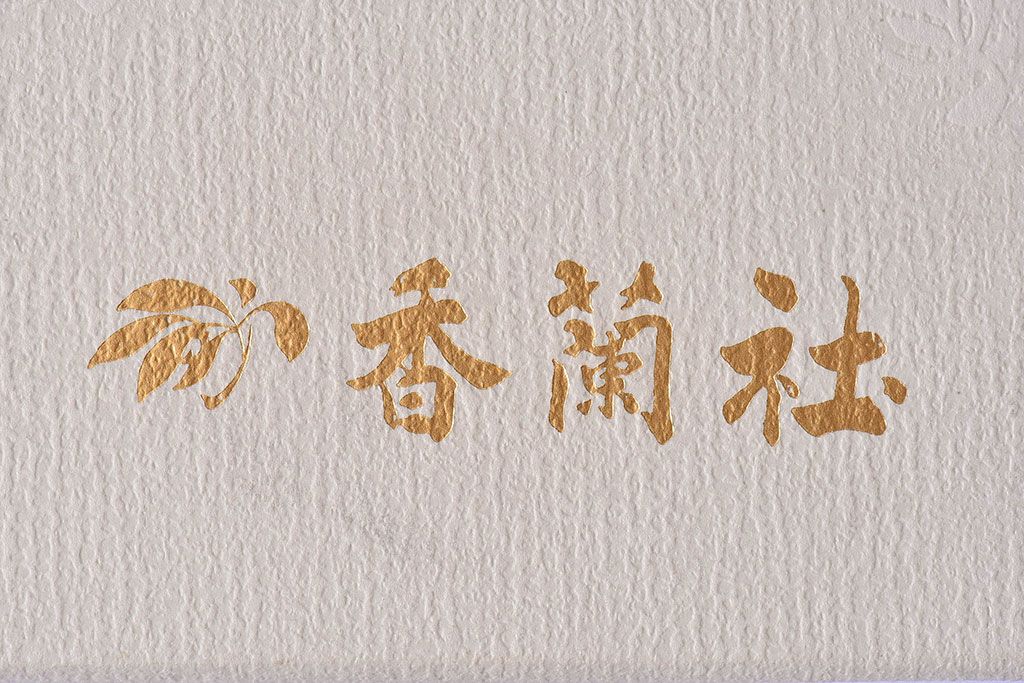 香蘭社